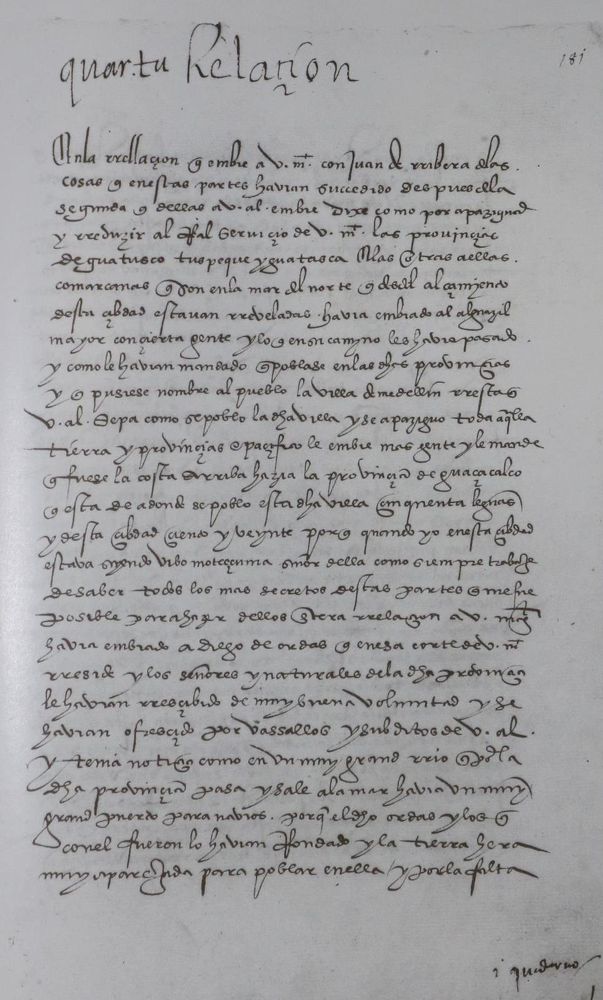 quarta Relaçion
181
En la rrellaçion q embie a v. mt. con Juan de rribera de las
cosas q en estas partes havian succedido despues de la
segunda q dellas a v. al. embie dixe como por apaziguar
y rreduzir al rreal serviçio de v. mt. las provinçias
de guatusco tustepeque y guatasca e las otras a ellas
comarcanas q son en la mar del norte q desde el alçamiento
desta çibdad estavan rreveladas havia embiado al alguazil
mayor con çierta gente y lo q en su camino les havie pasado
y como le havian mandado q poblase en las dhas provinçias
y q pusiese nombre al pueblo la villa de medellin rresta q
v. al. sepa como se poblo la dha villa y se apaziguo toda aqlla
tierra y provinçias e paçifico le embie mas gente y le mande
q fuese la costa arriba hazia la provinçia de guaçacalco
q esta de adonde se poblo esta dha villa çinquenta leguas
y desta çibdad ciento y veynte porq quando yo en esta çibdad
estava syendo vivo moteçuma señor della como siempre trabaje
de saber todos los mas secretos destas partes q me fue
posible para hazer dellos entera rrelaçion a v. mag
havia embiado a diego de ordas q en esa corte de v. mt.
rreside y los señores y naturales de la dha provinçia
le havian rresçibido de muy buena voluntad y se
havian ofresçido por vassallos y subditos de v. al.
y tenia notiçia como en un muy grand rrio q por la
dha provinçia pasa y sale a la mar havia un muy
grand puerto para navios. porq el dho ordas y los q
con el fueron lo havian rrondado y la tierra hera
muy aparejada para poblar en ella / y por la falta
1 quaderno